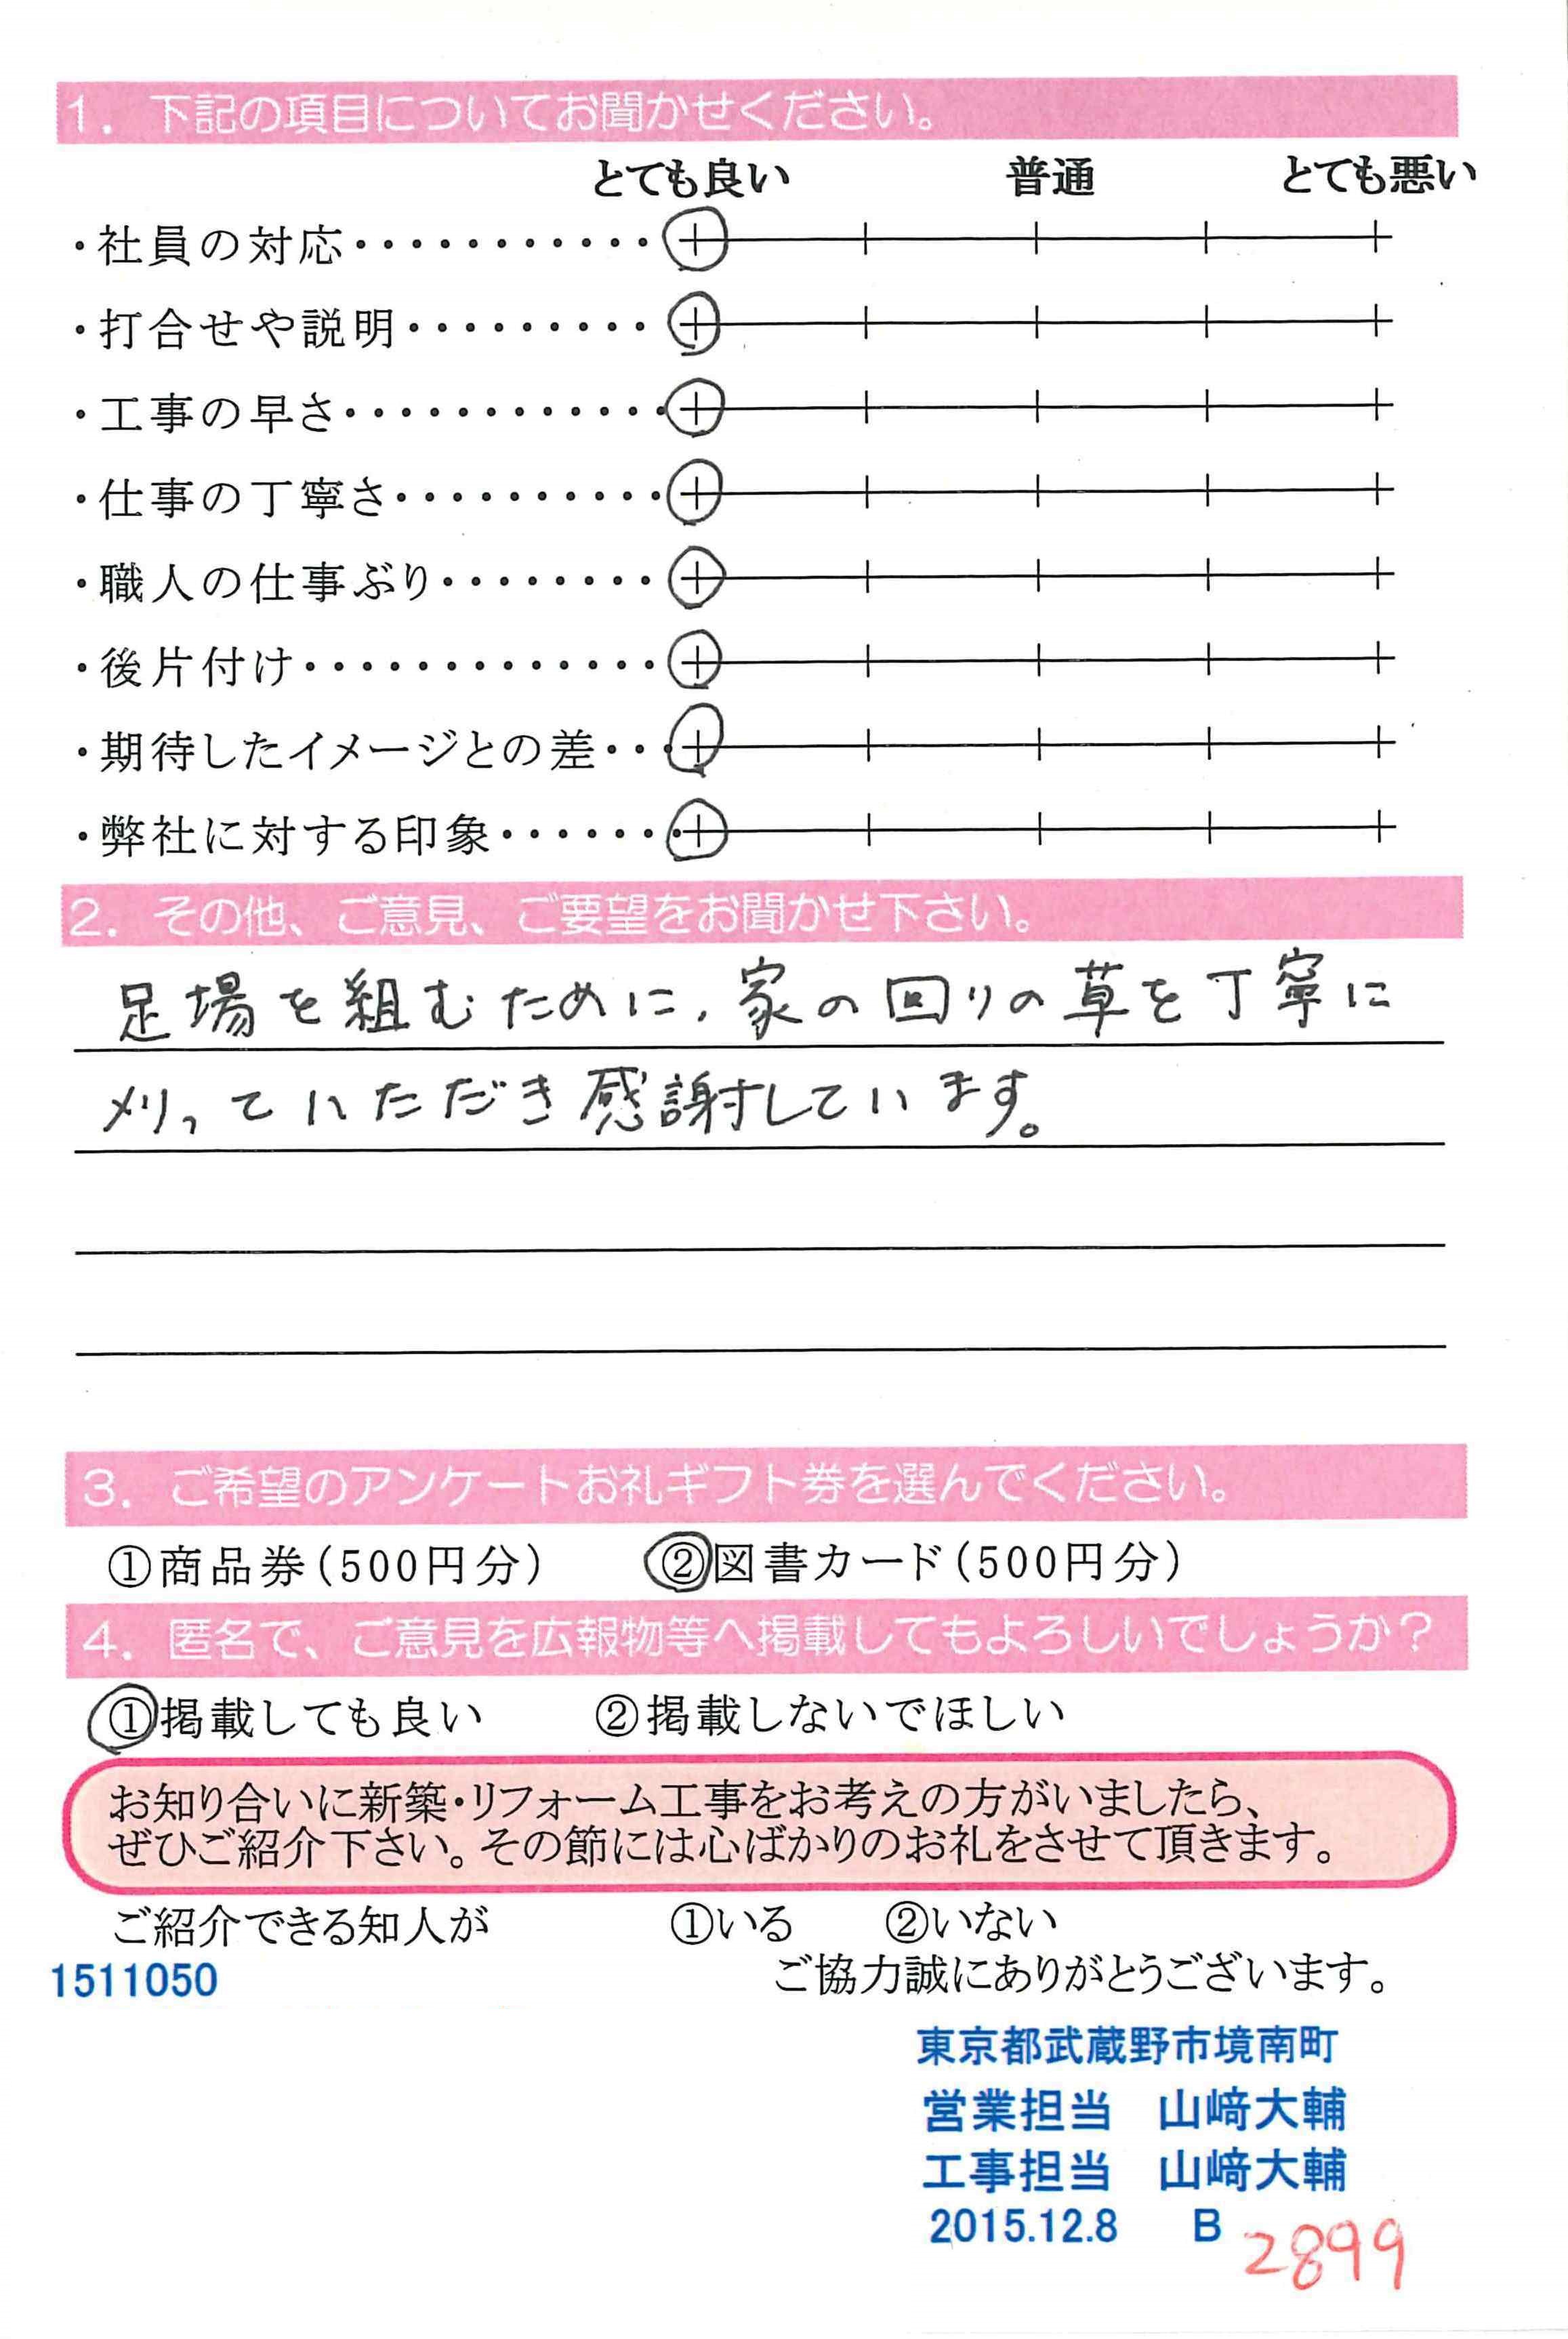 1. 下記の項目についてお聞かせください。
とても良い 普通 とても悪い
・社員の対応・・・・・・・・・・・
・打合せや説明・・・・・・・・・
・工事の早さ・・・・・・・・・・・・
・仕事の丁寧さ・・・・・・・・・・
・職人の仕事ぶり・・・・・・・・
・後片付け・・・・・・・・・・・・・
・期待したイメージとの差・・・
・弊社に対する印象・・・・・・・
2. その他、ご意見、ご要望をお聞かせ下さい。
足場を組むために、家の回りの草を丁寧に
刈っていただき感謝しています。
3. ご希望のアンケートお礼ギフト券を選んでください。
①商品券(500円分) ②図書カード(500円分)
4. 匿名で、ご意見を広報物等へ掲載してもよろしいでしょうか?
①掲載しても良い ②掲載しないでほしい
お知り合いに新築・リフォーム工事をお考えの方がいましたら、
ぜひご紹介下さい。その節には心ばかりのお礼をさせて頂きます。
ご紹介できる知人が ①いる ②いない
1511050 ご協力誠にありがとうございます。
東京都武蔵野市境南町
営業担当 山﨑大輔
工事担当 山﨑大輔
2015.12.8 B 2899